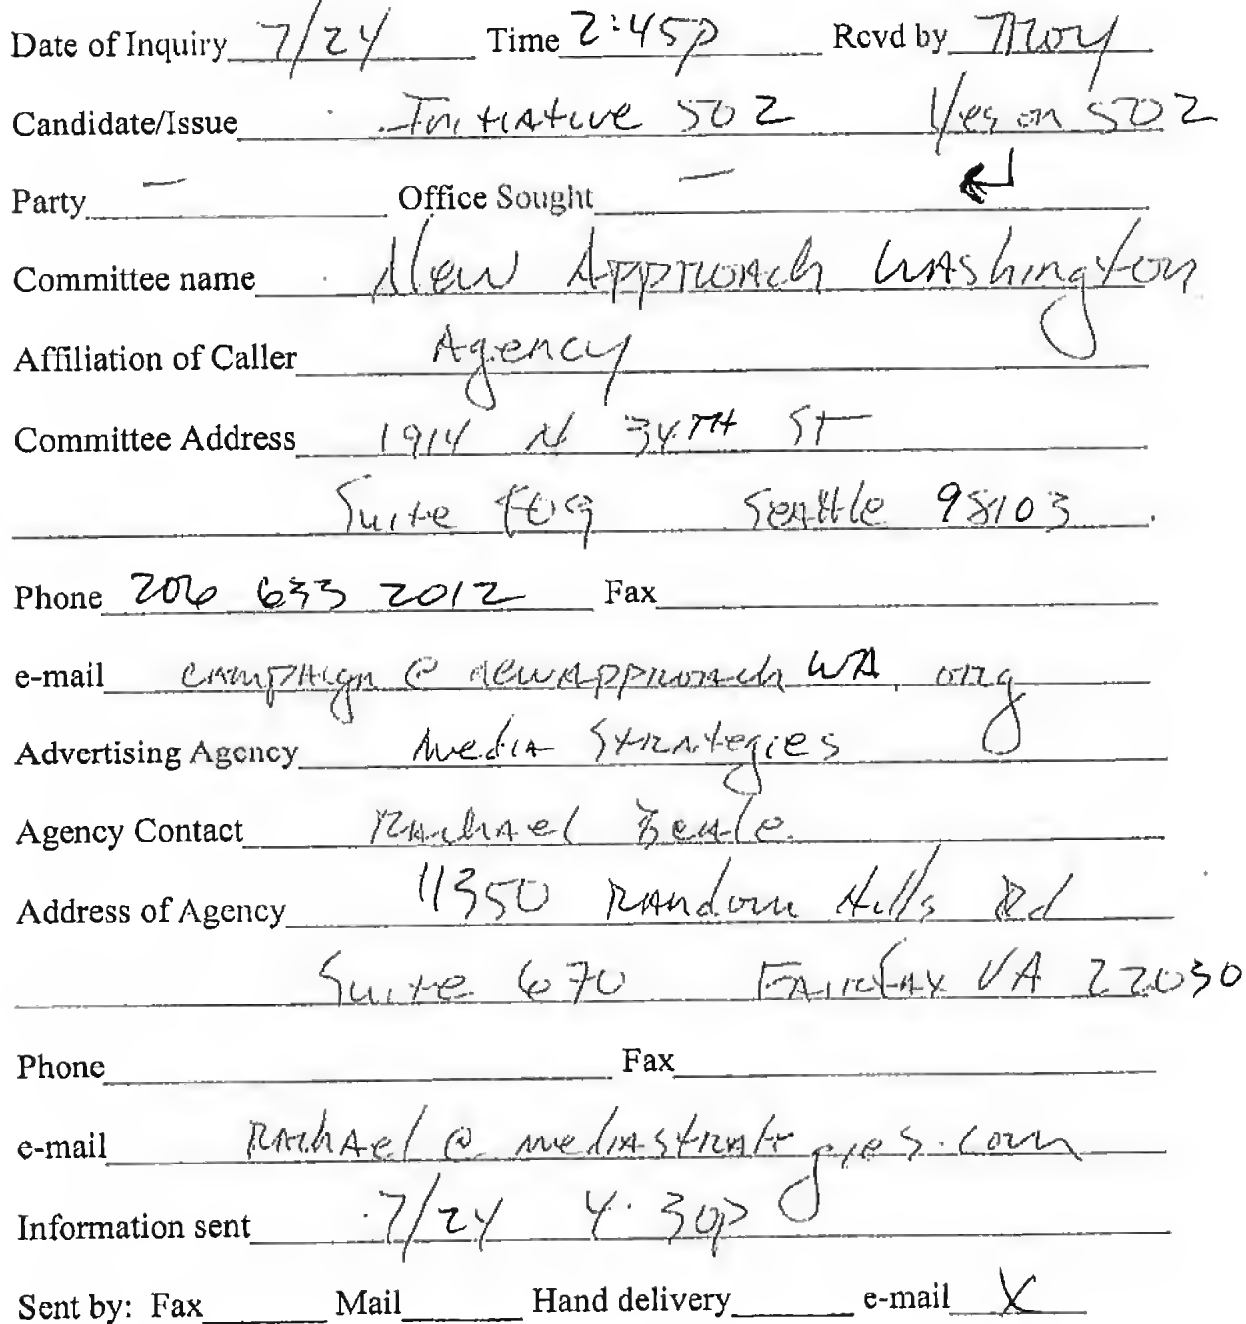 Date of Inquiry 7/24 Time 2:45p Rcvd by Troy
Candidate/Issue Initiative 502 Yes on 502
Party — Office Sought —
Committee name New Approach Washington
Affiliation of Caller Agency
Committee Address 1914 N 34TH St
Suite Seattle 98103
Phone 206 633 2012 Fax
e-mail campaign @ newapproach WA. org
Advertising Agency Media Strategies
Agency Contact Rachael Beale
Address of Agency 11350 Random Hills Rd
Suite 670 Fairfax VA 22030
Phone Fax
e-mail Rachael @ mediastrategies.com
Information sent 7/24 4:30p
Sent by: Fax Mail Hand delivery e-mail X